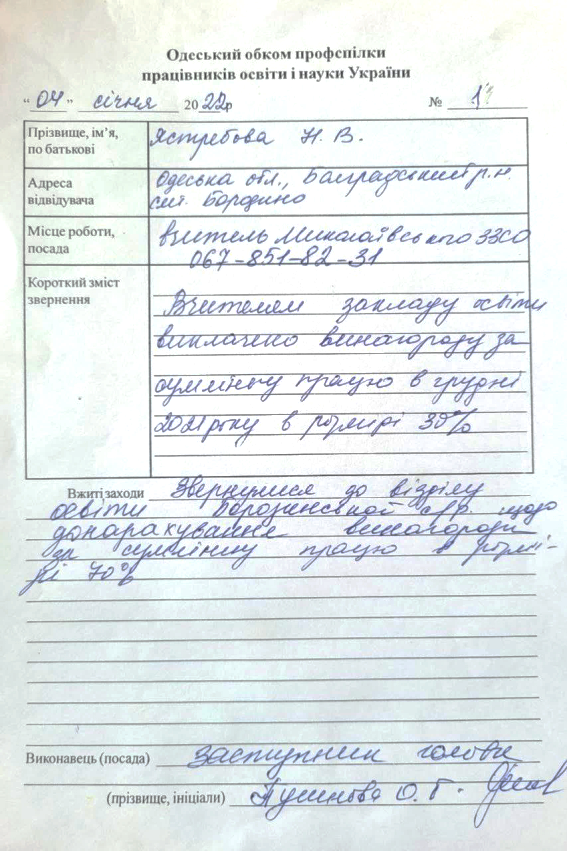 Одеський обком профспілки
працівників освіти і науки України
“04” січня 2022р № 1
Прізвище, ім’я,
по батькові
Ястребова Н. В.
Адреса
відвідувача
Одеська обл.,
смт. Бородіно
Місце роботи,
посада
вчитель Миколаївського ЗЗСО
067-851-82-31
Короткий зміст
звернення
Вчителям закладу освіти
виплачено винагороду за
сумлінну працю в грудні
2021 року в розмірі 30%
Вжиті заходи Звернулися до відділу
освіти Бородінської с/р. щодо
донарахування винагороди
за сумлінну працю в розмі-
рі 70%
Виконавець (посада) заступник голови
(прізвище, ініціали) О. Г.